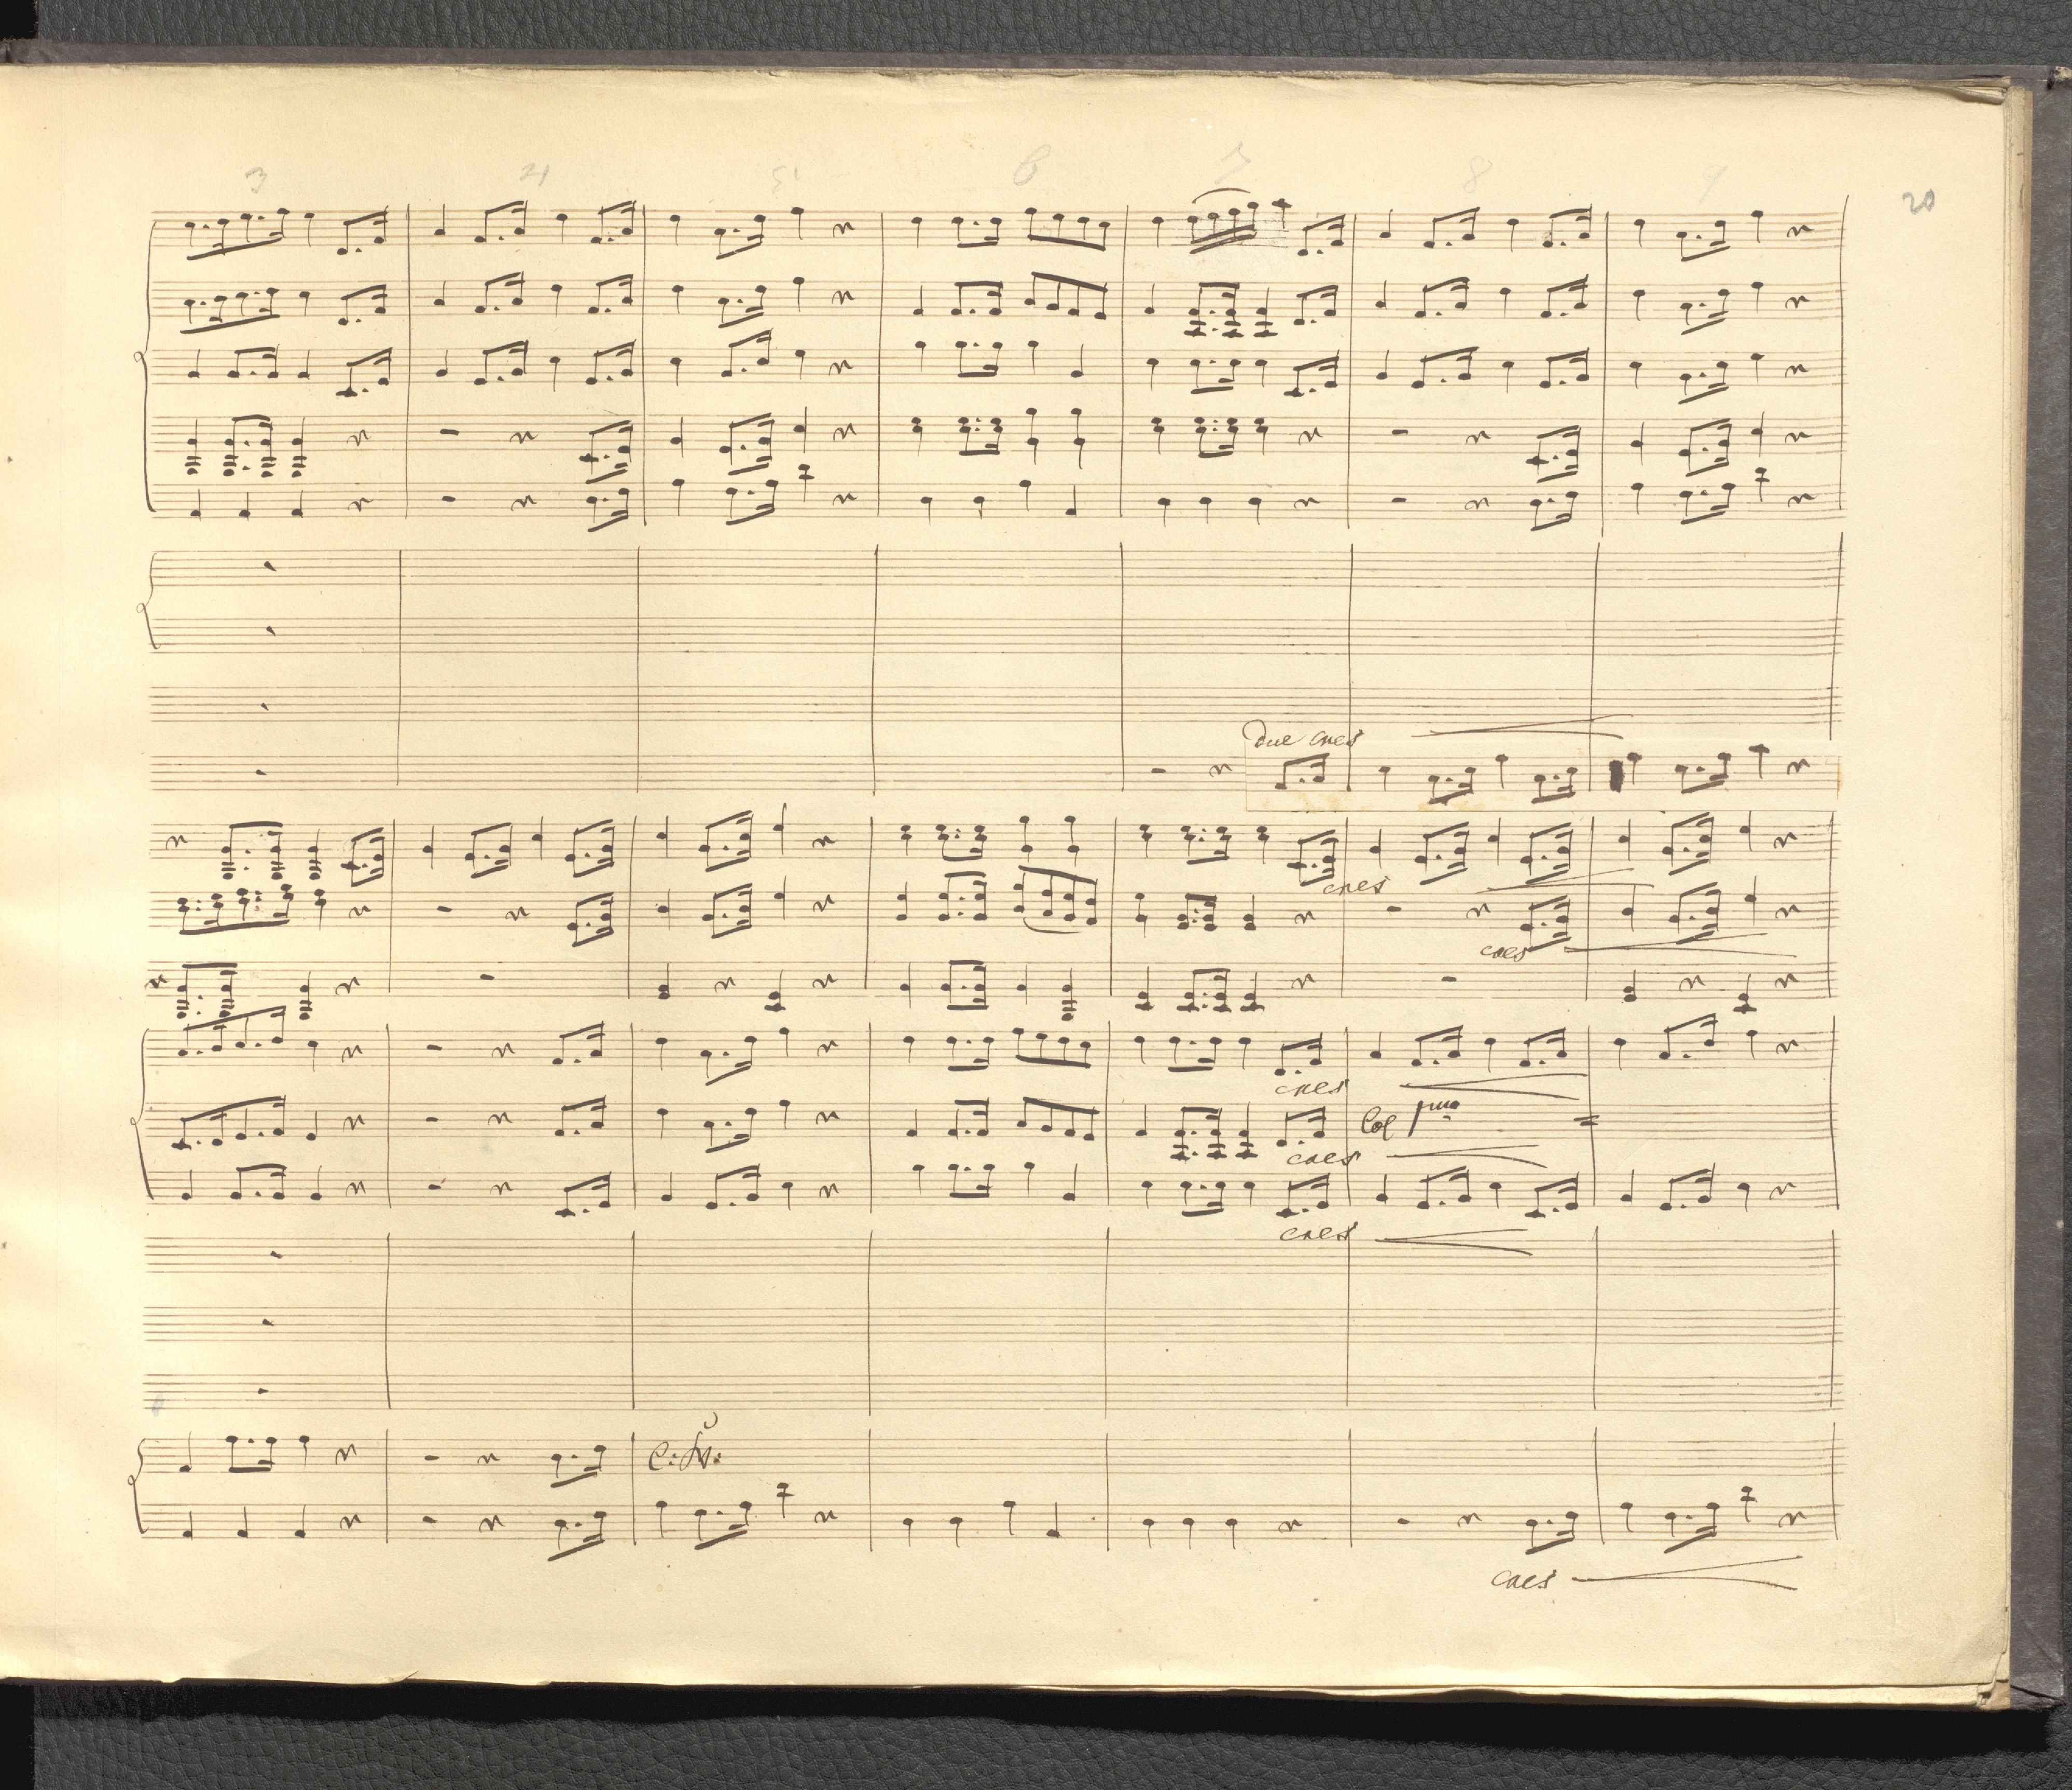 3 4 5 6 7 8 9
20
due cres
cres
cres
cres
Col pmo
cres
cres
C: Vv:
cres